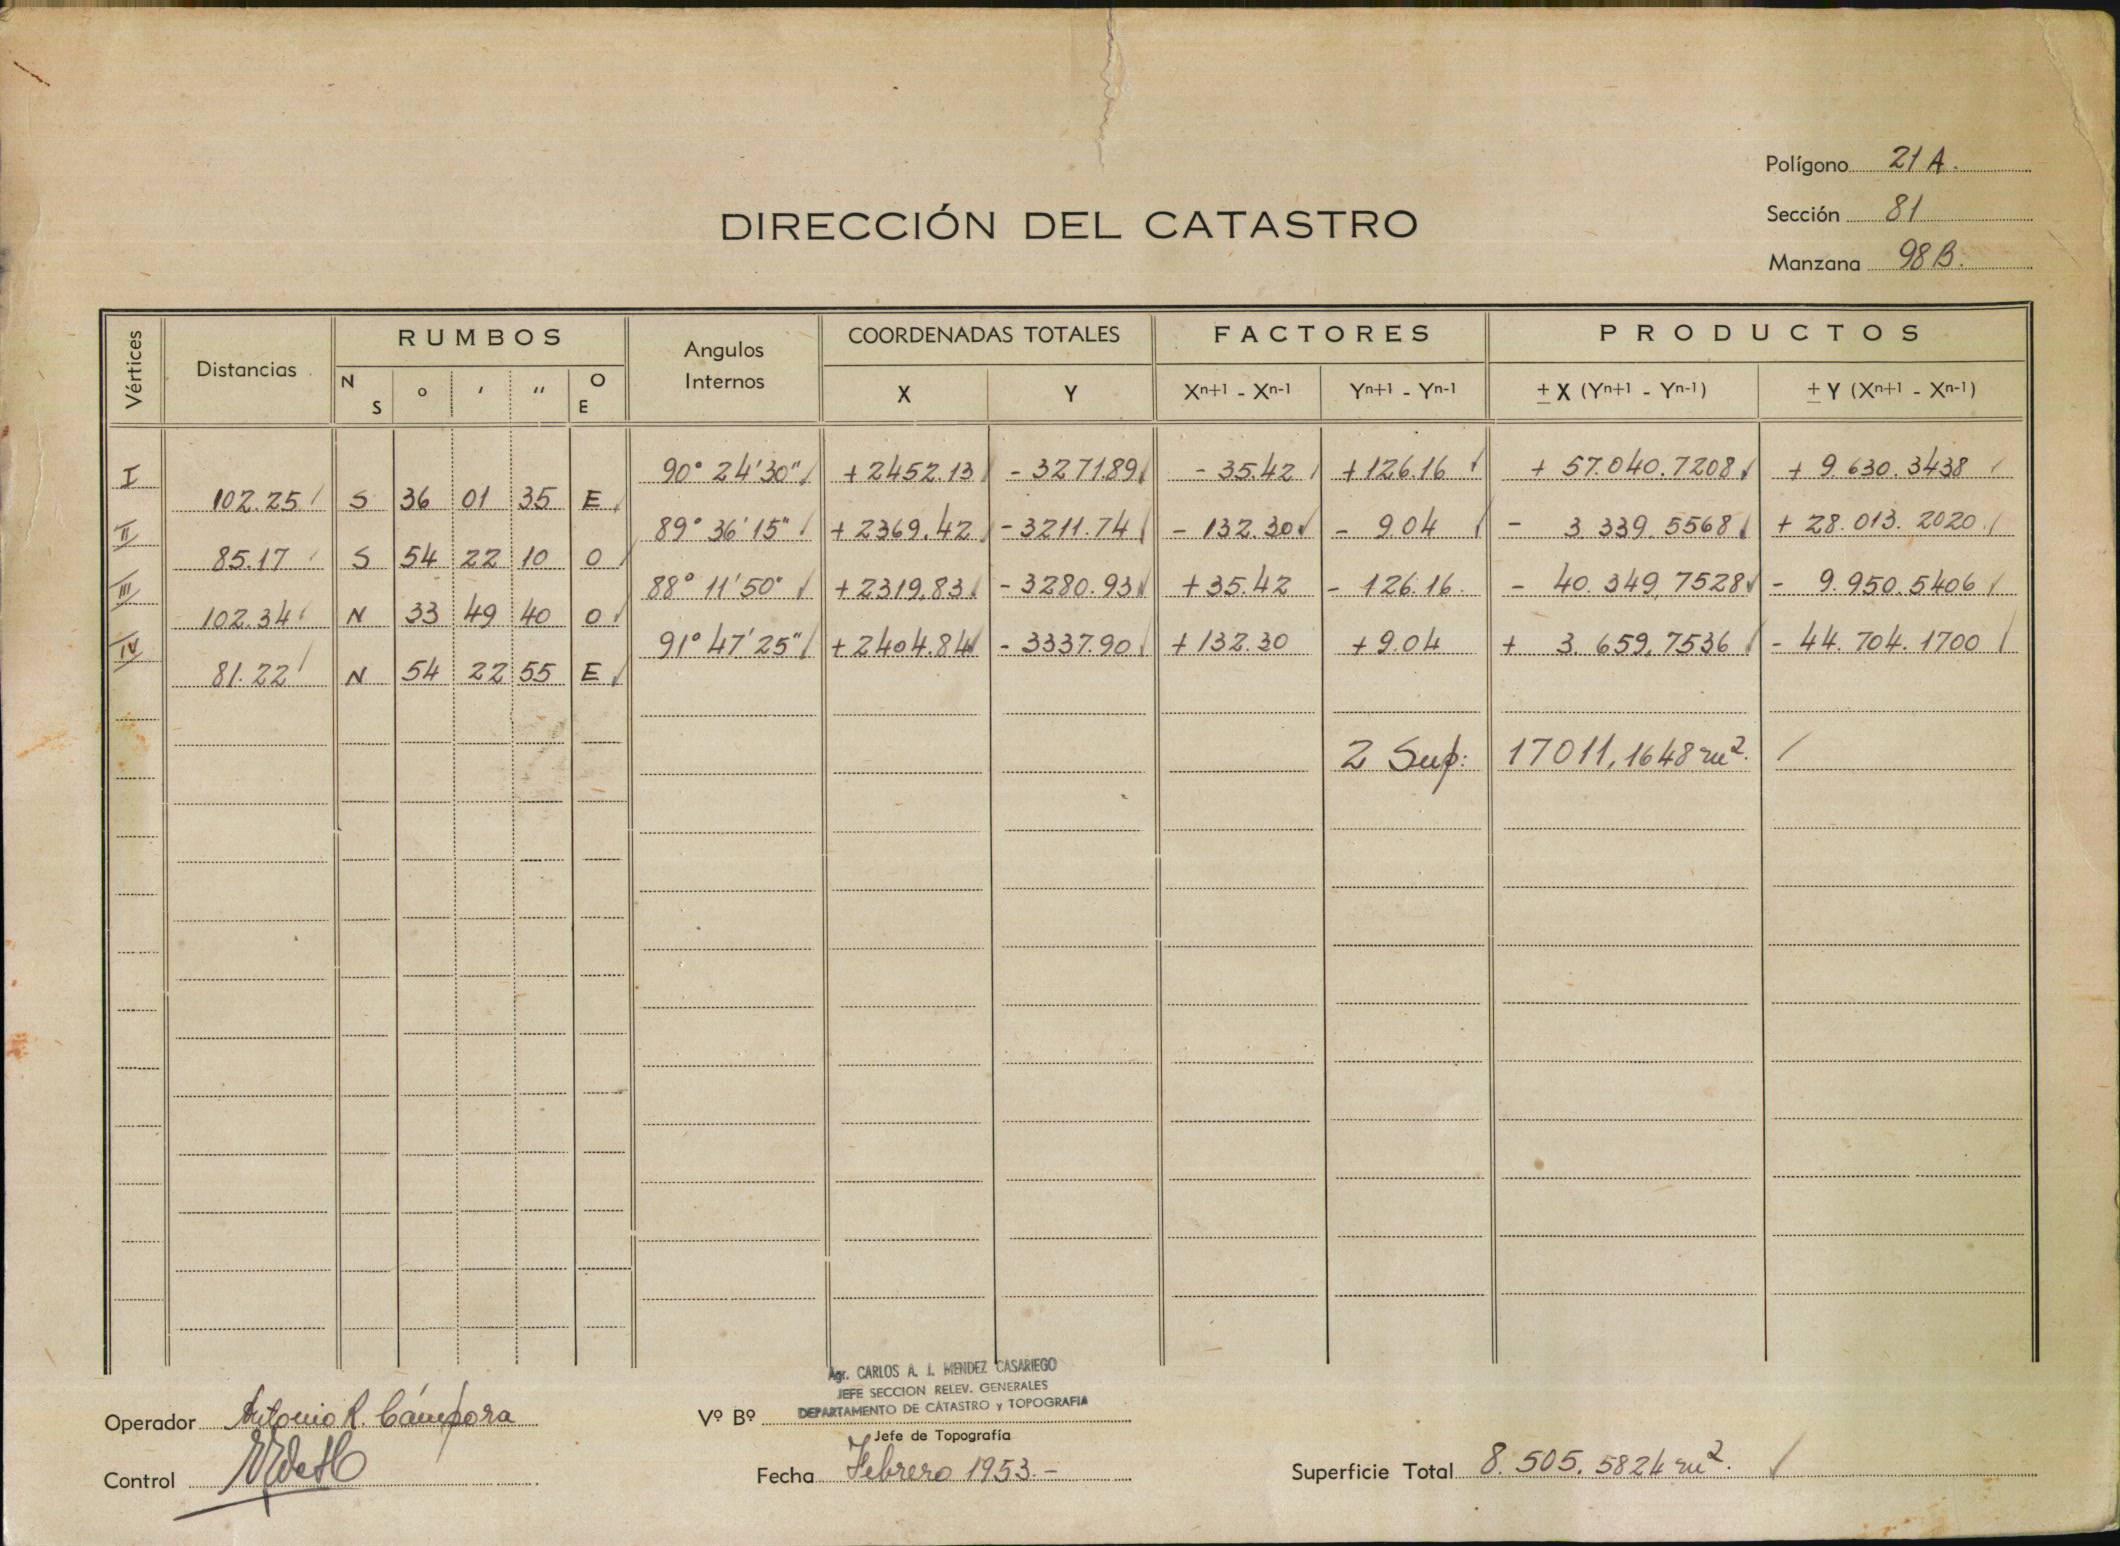 Polígono 21 A.
Sección 81
Manzana 98 B.
DIRECCIÓN DEL CATASTRO
Vértices Distancias RUMBOS Angulos Internos COORDENADAS TOTALES FACTORES PRODUCTOS
N S ° ' " O E X Y Xn+1 - Xn-1 Yn+1 - Yn-1 ± X (Yn+1 - Yn-1) ± Y (Xn+1 - Xn-1)
I 90° 24' 30" + 2452.13 - 3271.89 - 35.42 + 126.16 + 57.040.7208 + 9.630.3438
102.25 S 36 01 35 E
II 89° 36' 15" + 2369.42 - 3211.74 - 132.30 - 9.04 - 3.339.5568 + 28.013.2020
85.17 S 54 22 10 O
III 88° 11' 50" + 2319.83 - 3280.93 + 35.42 - 126.16. - 40.349.7528 - 9.950.5406
102.34 N 33 49 40 O
IV 91° 47' 25" + 2404.84 - 3337.90 + 132.30 + 9.04 + 3.659.7536 - 44.704.1700
81.22 N 54 22 55 E
2 Sup: 17011,1648 m2.
Agr. CARLOS A. J. MENDEZ CASARIEGO
JEFE SECCION RELEV. GENERALES
DEPARTAMENTO DE CATASTRO y TOPOGRAFIA
Operador Antonio R. Cámpora Vº Bº
Jefe de Topografía
Control Fecha Febrero 1953.- Superficie Total 8.505.5824 m2.